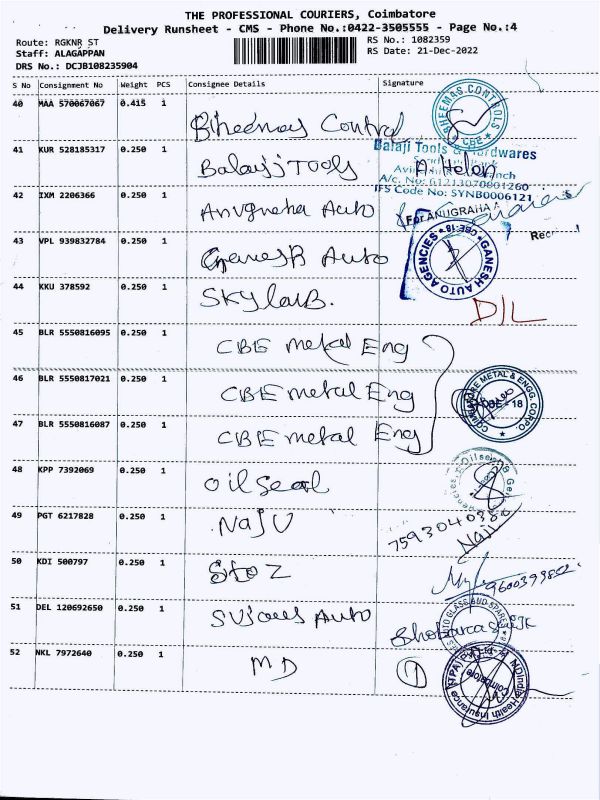 THE PROFESSIONAL COURIERS, Coimbatore
Delivery Runsheet - CMS - Phone No.:0422-3505555 - Page No.:4
Route: RGKNR ST
RS No.: 1082359
Staff: ALAGAPPAN
RS Date: 21-Dec-2022
DRS No.: DCJB108235904
S No Consignment No Weight PCS Consignee Details Signature
40 MAA 570067067 0.415 1 Bheemas Control
BHEEMAS CONTROLS CBE
41 KUR 528185317 0.250 1 Balajji Tools
Balaji Tools & Hardwares
A/c. No: 61213070001260
IFS Code No: SYNB0006121
A Helen
42 IXM 2206366 0.250 1 Anugraha Auto
For ANUGRAHA A
43 VPL 939832784 0.250 1 Ganesh Auto
GANESH AUTO AGENCIES CBE-18
44 KKU 378592 0.250 1 Skylab.
D/L
45 BLR 5550816095 0.250 1 CBE metal Eng
46 BLR 5550817021 0.250 1 CBE metal Eng
COIMBATORE METAL & ENGG. CORPO. CBE - 18
47 BLR 5550816087 0.250 1 CBE metal Eng
48 KPP 7392069 0.250 1 oil seal
49 PGT 6217828 0.250 1 Naju
Naju
50 KDI 500797 0.250 1
51 DEL 120692650 0.250 1 Auto
52 NKL 7972640 0.250 1 MD 1
MDIndia Health Insurance TPA Coimbatore